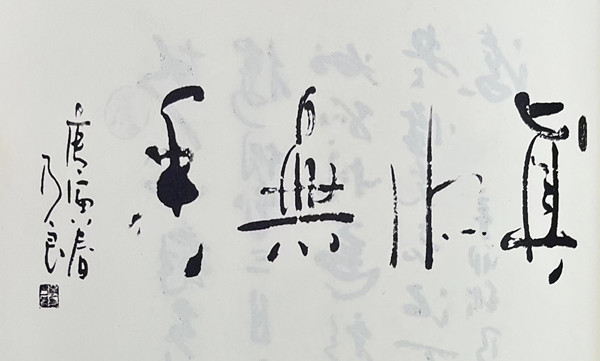 眞水無香
庚寅春
乃良